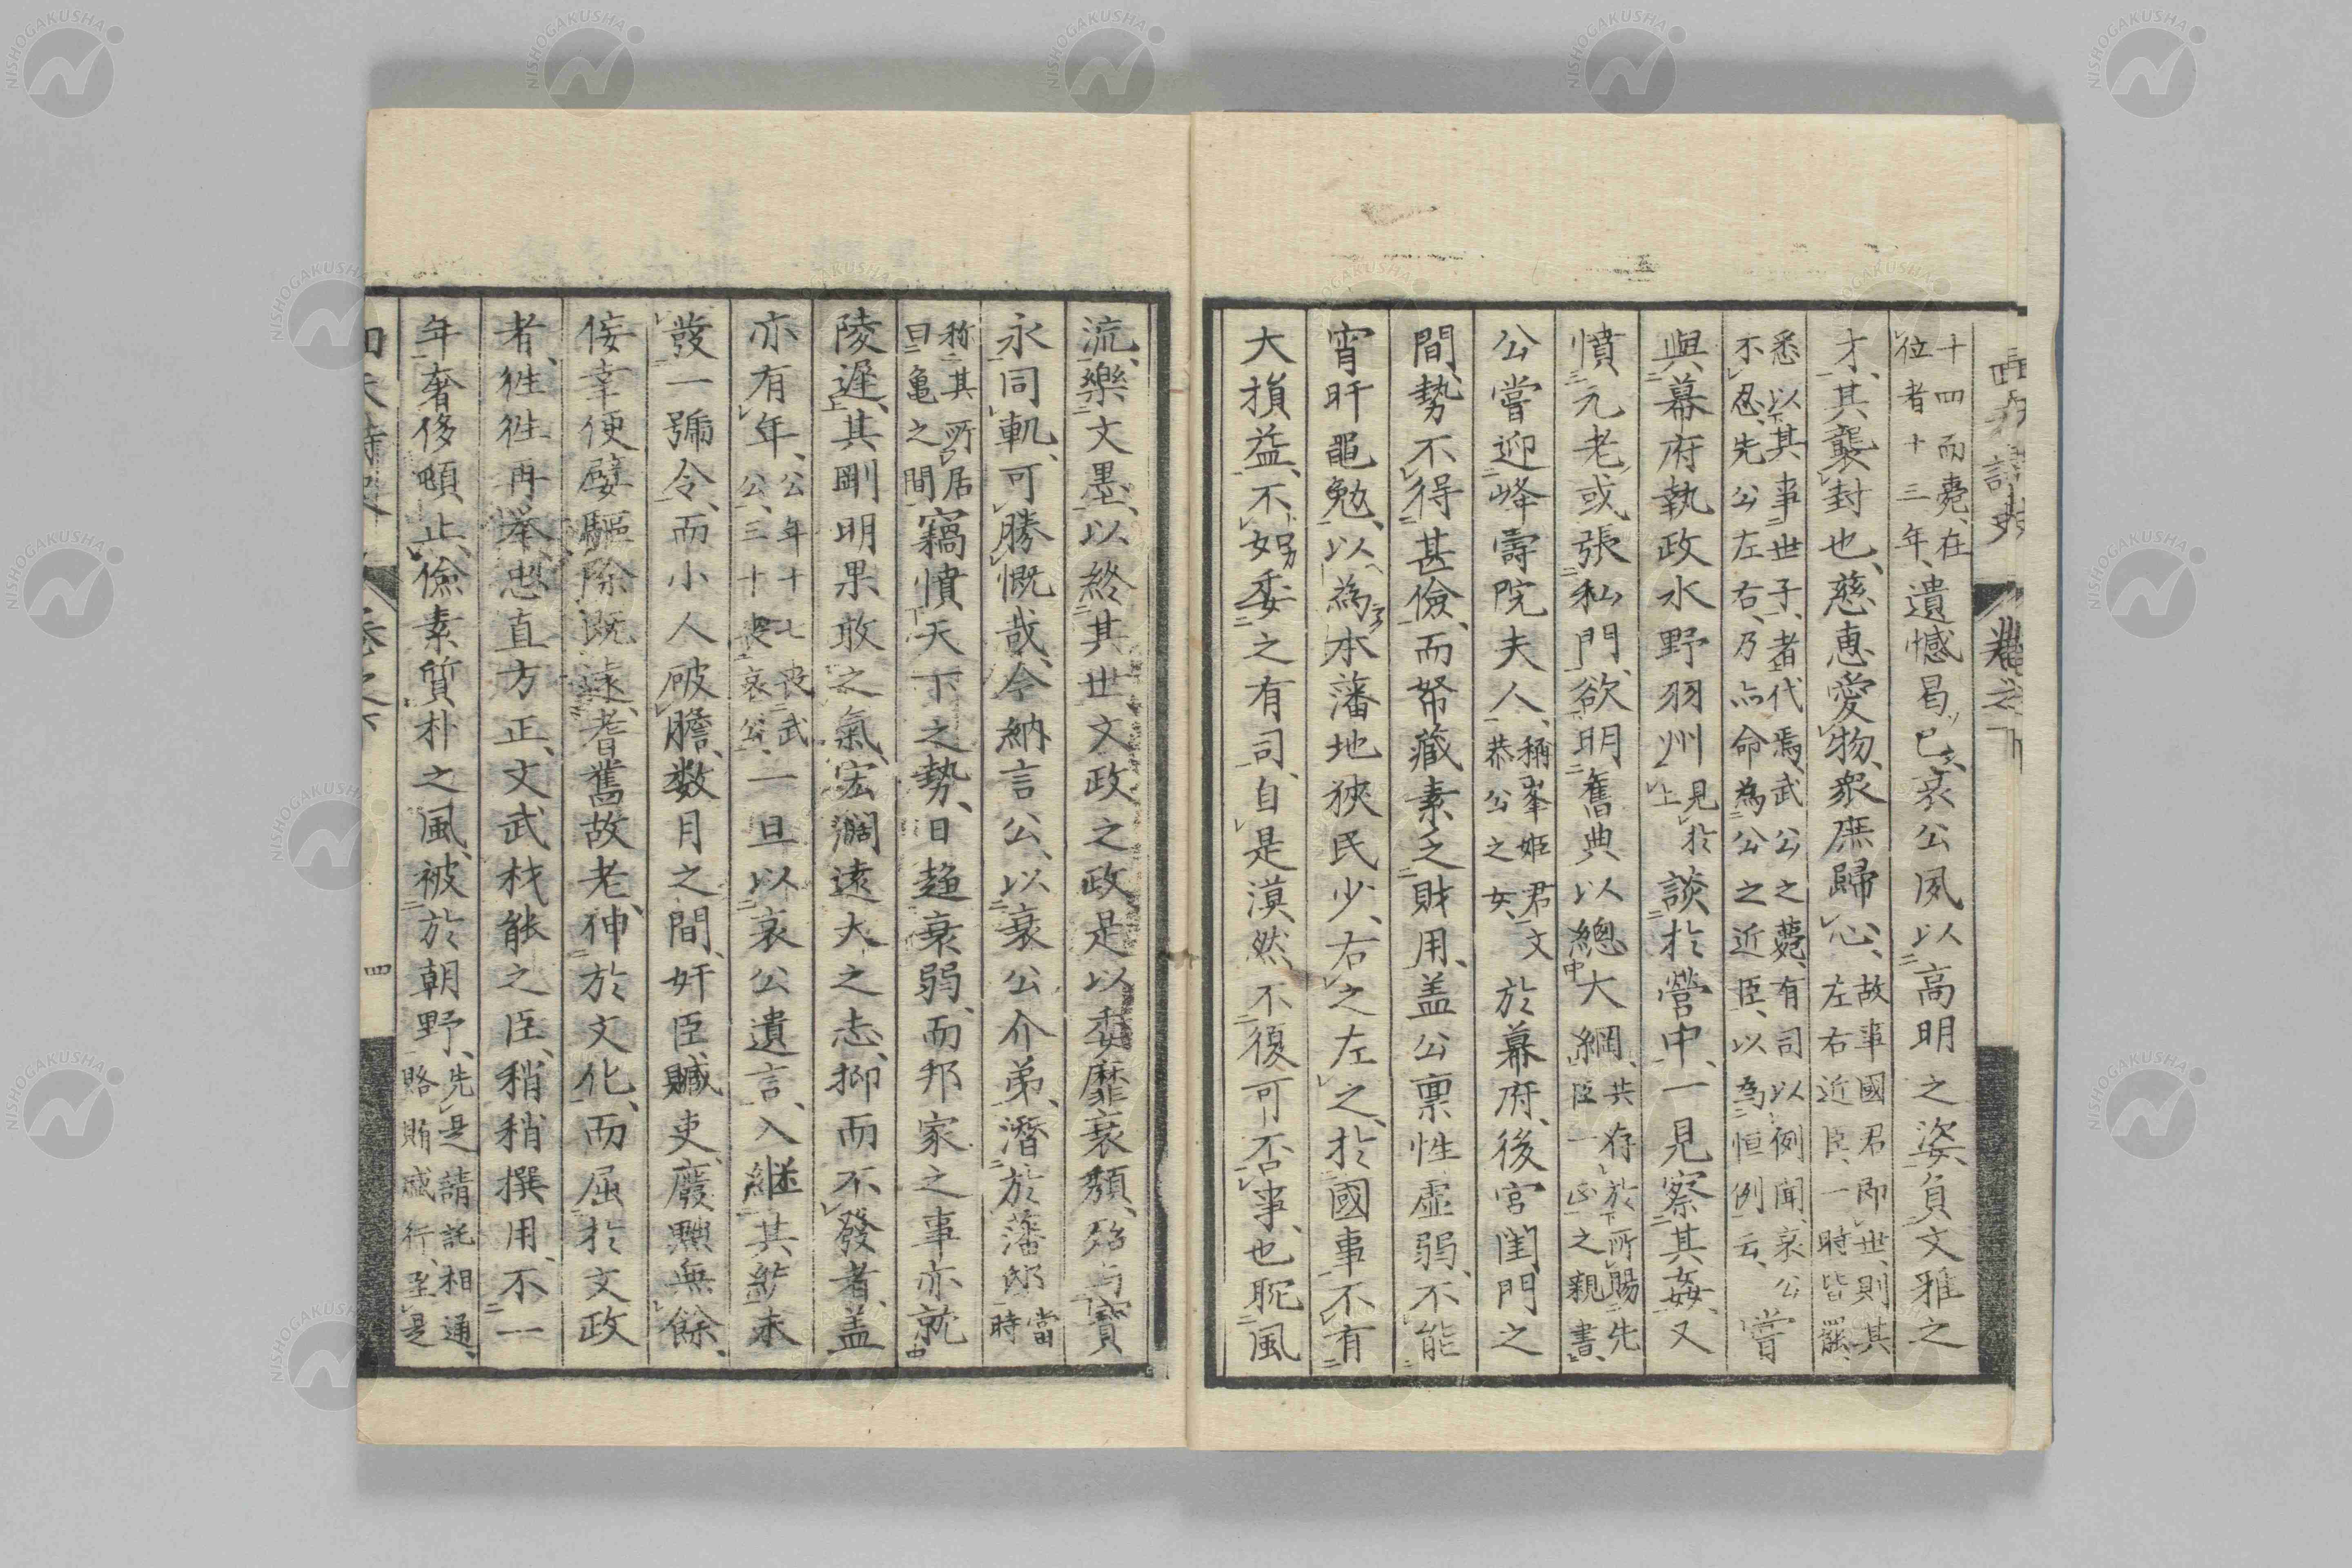 十四而薨、在
位者十三年、遺憾曷已、哀公夙以高明之姿、負文雅之
才、其襲封也、慈惠愛物、衆庶歸心、故事國君即世、則其
左右近臣、一時皆罷、
悉以其事世子者代焉、武公之薨、有司以例聞、哀公
不忍、先公左右、乃命為公之近臣、以為恒例云、嘗
與幕府執政水野羽州見於上談於營中、一見察其姦、又
憤元老或張私門、欲明舊典以總大綱、共存於所賜先
臣一之親書、
公嘗迎峰壽院夫人、稱峯姬君文
恭公之女、於幕府、後宮閨門之
間、勢不得甚儉、而帑藏素乏財用、盖公禀性虛弱、不能
宵旰黽勉、以為本藩地狹民少、右之左之、於國事、不有
大損益、不如委之有司、自是漠然、不復可否事、也耽風
流、樂文墨、以終其世、文政之政是以委靡衰頽、殆与寶
永同軌、可勝慨哉、今納言公、以哀公介弟、潛於藩邸、當
時
称其所居
曰亀之間竊憤天下之勢、日趍衰弱、而邦家之事亦就
陵遲、其剛明果敢之氣、宏濶遠大之志、抑而不發者、盖
亦有年、公年十七喪武
公、三十喪哀公、一旦以哀公遺言、入継其統、未
發一號令、而小人破膽、数月之間、奸臣贓吏、廢黜無餘、
佞幸便嬖驅除既遠、耆舊故老、伸於文化、而屈於文政
者、徃徃再举、忠直方正、文武材能之臣、稍稍撰用、不一
年、奢侈頓止、儉素質朴之風、被於朝野、先是請託相通、
賂賄盛行、至是
卷之下
四